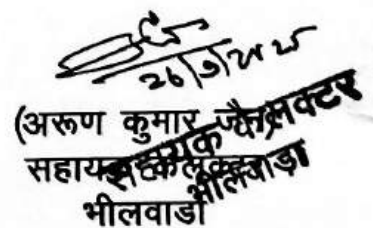 26/9/2025
(अरूण कुमार जैन)
सहायक कलक्टर
भीलवाडा
सहायक कलक्टर
भीलवाड़ा